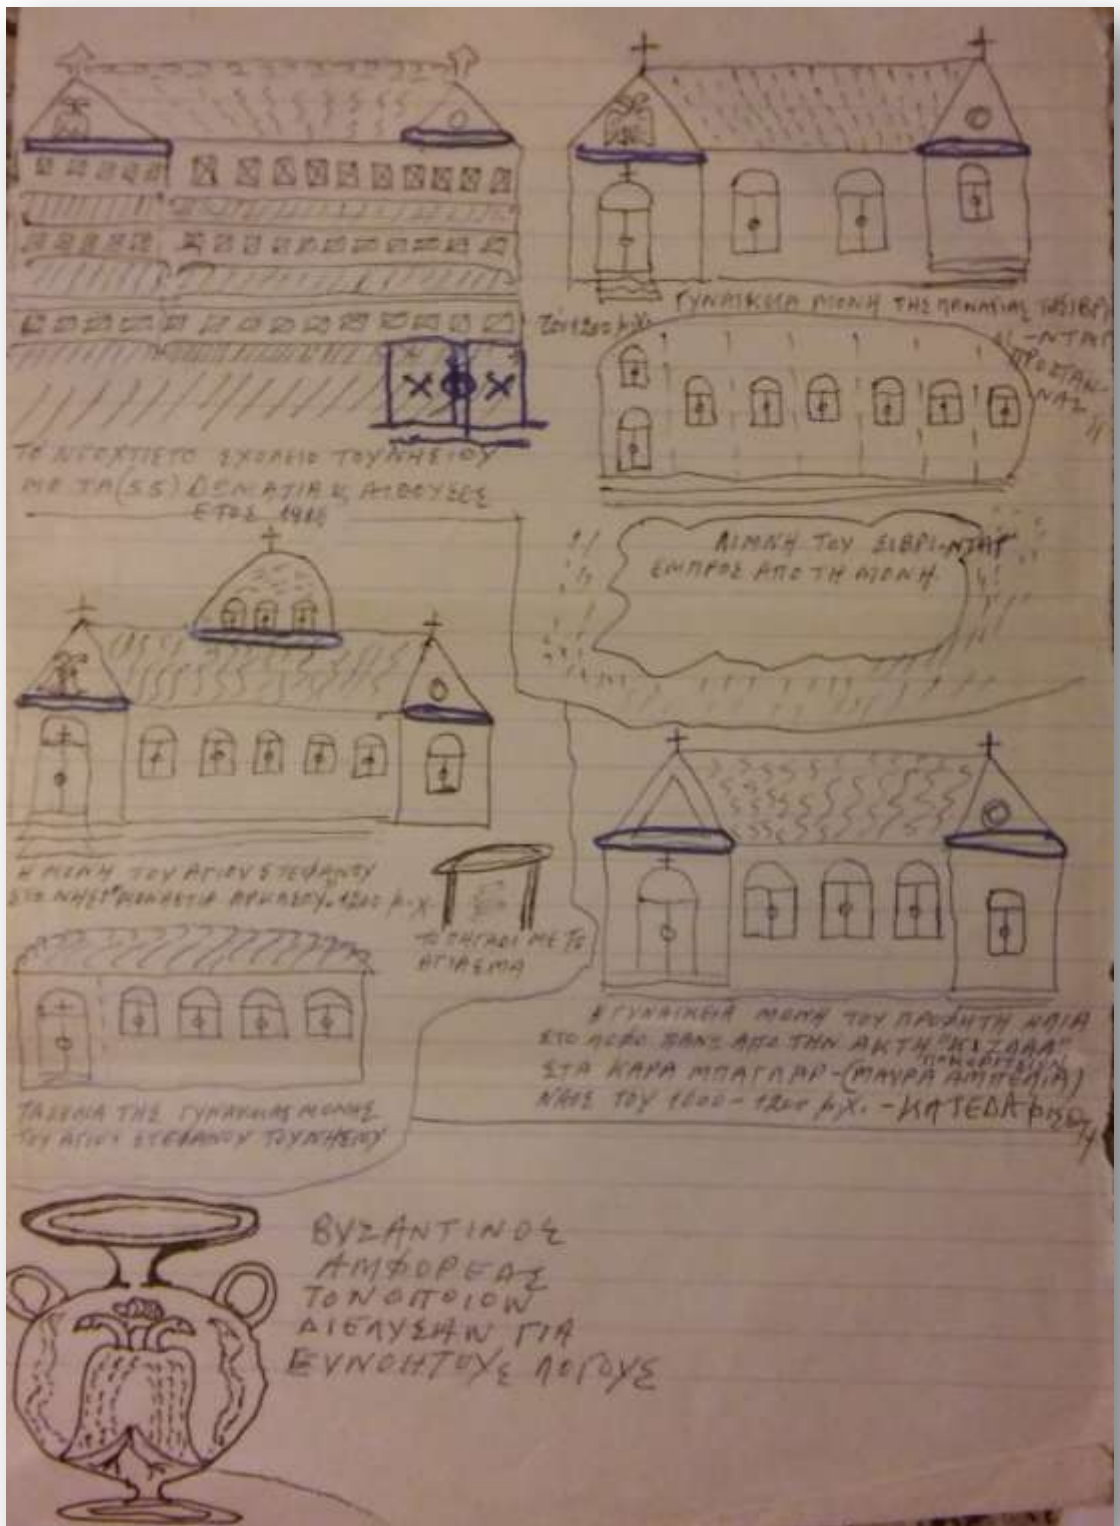 ΤΟ ΝΕΟΧΤΙΣΤΟ ΣΧΟΛΕΙΟ ΤΟΥ ΝΗΣΙΟΥ
ΜΕ ΤΑ (55) ΔΩΜΑΤΙΑ Κ ΑΙΘΟΥΣΕΣ
ΕΤΟΣ
ΓΥΝΑΙΚΕΙΑ ΜΟΝΗ ΤΗΣ ΠΑΝΑΓΙΑΣ ΤΟΥ ΣΙΒΡΙ
-ΝΤΑΓ
ΤΟΥ 1200 μ.Χ.
ΛΙΜΝΗ ΤΟΥ ΣΙΒΡΙ-ΝΤΑΓ
ΕΜΠΡΟΣ ΑΠΟ ΤΗ ΜΟΝΗ
Η ΜΟΝΗ ΤΟΥ ΑΓΙΟΥ ΣΤΕΦΑΝΟΥ
ΣΤΟ ΝΗΣΙ 1200 μ.Χ
ΤΟ ΠΗΓΑΔΙ ΜΕ ΤΟ
ΑΓΙΑΣΜΑ
ΤΗΣ ΓΥΝΑΙΚΕΙΑΣ ΜΟΝΗΣ
ΤΟΥ ΑΓΙΟΥ ΣΤΕΦΑΝΟΥ ΤΟΥ ΝΗΣΙΟΥ
Η ΓΥΝΑΙΚΕΙΑ ΜΟΝΗ ΤΟΥ ΠΡΟΦΗΤΗ ΗΛΙΑ
ΣΤΟ ΛΟΦΟ ΠΑΝΩ ΑΠΟ ΤΗΝ ΑΚΤΗ
ΣΤΑ ΚΑΡΑ ΜΠΑΓΛΑΡ-(ΜΑΥΡΑ ΑΜΠΕΛΙΑ)
ΝΑΟΣ ΤΟΥ 1000-1200 μ.Χ. -ΚΑΤΕΔΑφισθη
ΒΥΖΑΝΤΙΝΟΣ
ΑΜΦΟΡΕΑΣ
ΤΟΝ ΟΠΟΙΟΝ
ΔΙΕΛΥΣΑΝ ΓΙΑ
ΕΥΝΟΗΤΟΥΣ ΛΟΓΟΥΣ